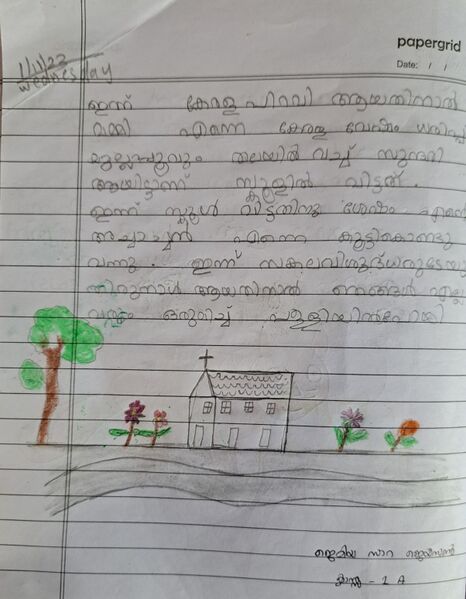 papergrid
Date: / /
1/11/22
wednesday
ഇന്ന് കേരള പിറവി ആയതിനാൽ
മമ്മി എന്നെ കേരള വേഷം ധരിപ്പ
മുല്ലപ്പൂവും തലയിൽ വച്ച് സുന്ദരി
ആയിട്ടാണ് സ്കൂളിൽ വിട്ടത്.
ഇന്ന് സ്കൂൾ വിട്ടതിനു ശേഷം എന്റെ
അച്ചാച്ചൻ എന്നെ കൂട്ടികൊണ്ടു
വന്നു. ഇന്ന് സകലവിശുദ്ധരുടേയു
തിരുനാൾ ആയതിനാൽ ഞങ്ങൾ എല്ലാ
വരും ഒരുമിച്ച് പള്ളിയിൽ
സാറ
ക്ലാസ്സ് - 2 A